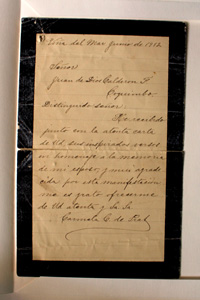 Viña del Mar Junio de 1912.
Señor
Juan de Dios Calderon F.
Coquimbo
Distinguido señor
He recibido
junto con la atenta carta
de Ud. sus inspirados versos
en homenaje a la memoria
de mi esposo, y muy agrade
cida por esta manifestacion
me es grato ofrecerme
de Ud. atenta y S. S.
Carmela C. de Prat